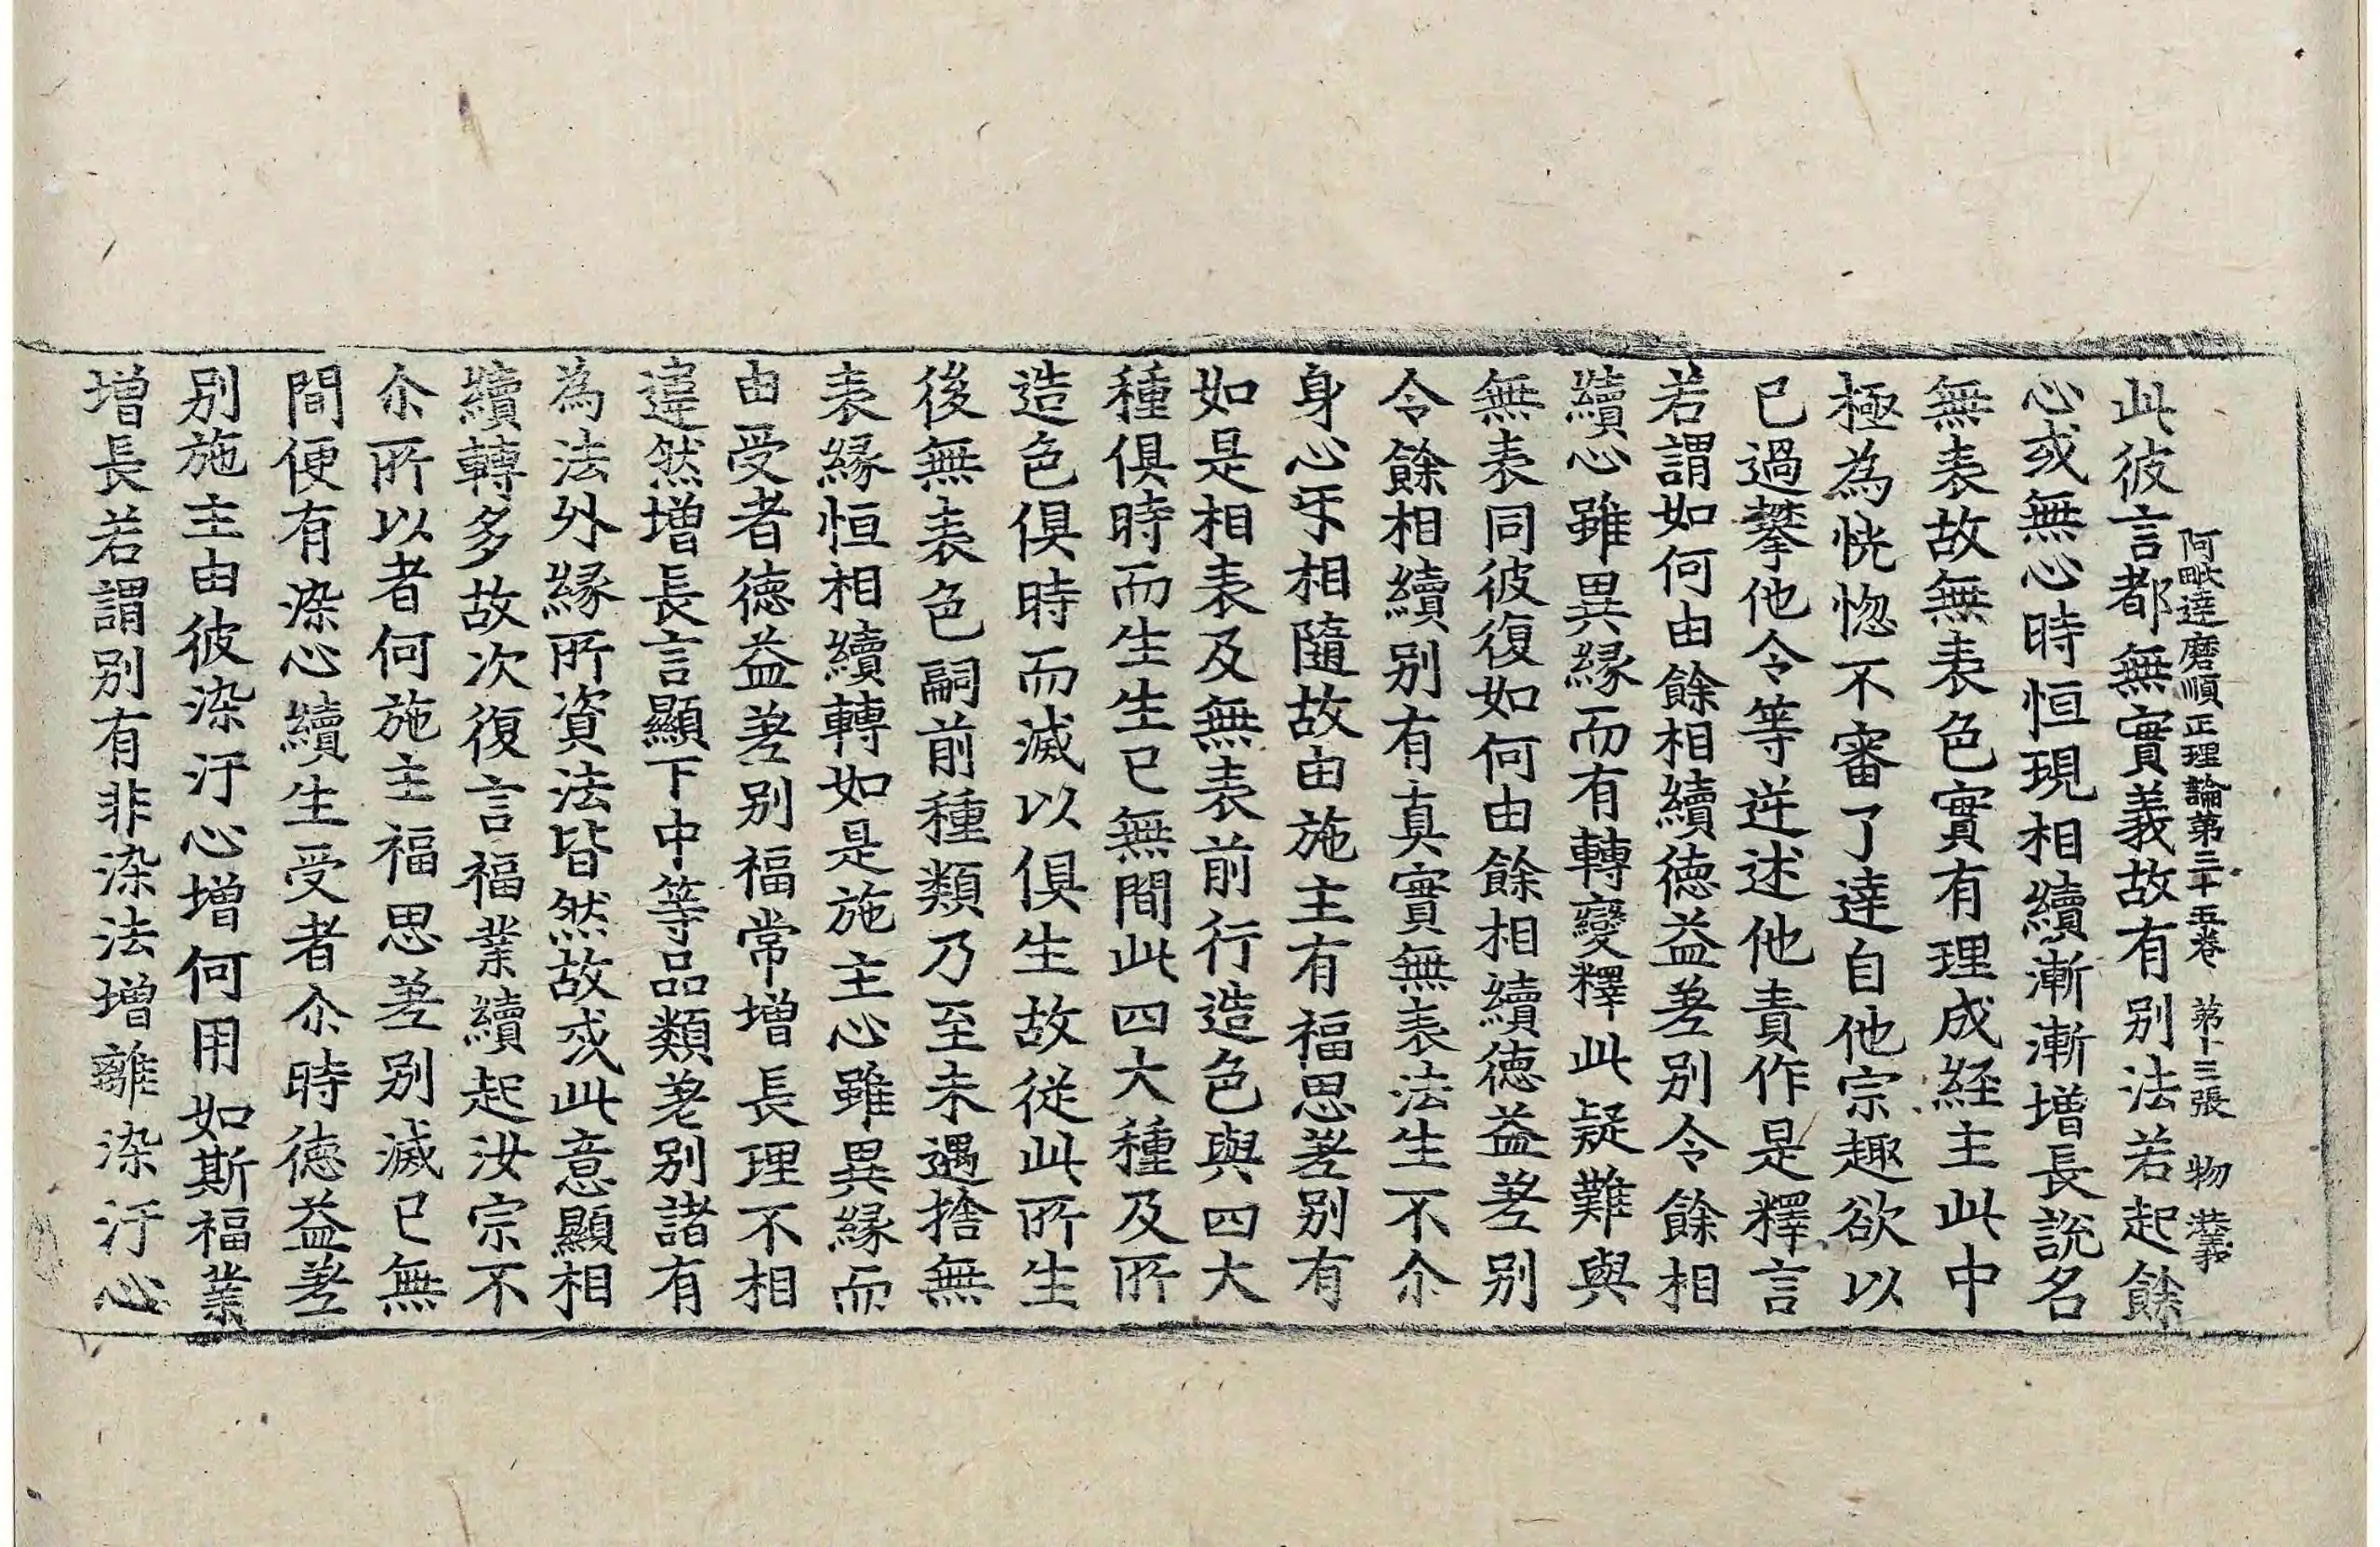 阿毗達磨順正理論第三十五卷 第十三張 物
此彼言都無實義故有別法若起餘
心或無心時恒現相續漸漸增長說名
無表故無表色實有理成經主此中
極為恍惚不審了達自他宗趣欲以
已過攀他令等逆述他責作是釋言
若謂如何由餘相續德益差別令餘相
續心雖異緣而有轉變釋此疑難與
無表同彼復如何由餘相續德益差別
令餘相續別有真實無表法生不尒
身心乎相隨故由施主有福思差別有
如是相表及無表前行造色與四大
種俱時而生生已無間此四大種及所
造色俱時而滅以俱生故從此所生
後無表色嗣前種類乃至未遇捨無
表緣恒相續轉如是施主心雖異緣而
由受者德益差別福常增長理不相
違然增長言顯下中等品類差別諸有
為法外緣所資法皆然故或此意顯相
續轉多故次復言福業續起汝宗不
尒所以者何施主福思差別滅已無
間便有染心續生受者尒時德益差
別施主由彼染汙心增何用如斯福業
增長若謂別有非染法增離染汙心